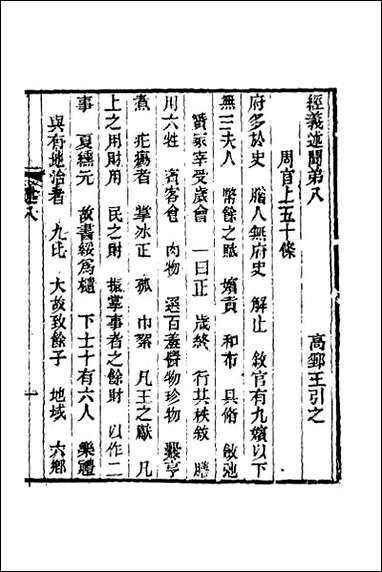 經義述聞弟八
高郵王引之
周官上五十條
府多於史 腊人無府史 解止 敘官有九嬪以下
無三夫人 幣餘之賦 嬪貢 和布 具脩 斂弛
贊冢宰受歲會 一曰正 歲終 行其秩敘 膳
用六牲 賓客會 肉物 選百羞醬物珍物 爨亨
煮 疕瘍者 掌冰正 孤 巾絮 凡王之獻 凡
上之用財用 民之財 振掌事者之餘財 以作二
事 夏纁元 故書綏爲𣜩 下士十有六人 樂體
與有地治者 九比 大故致餘子 地域 六鄉